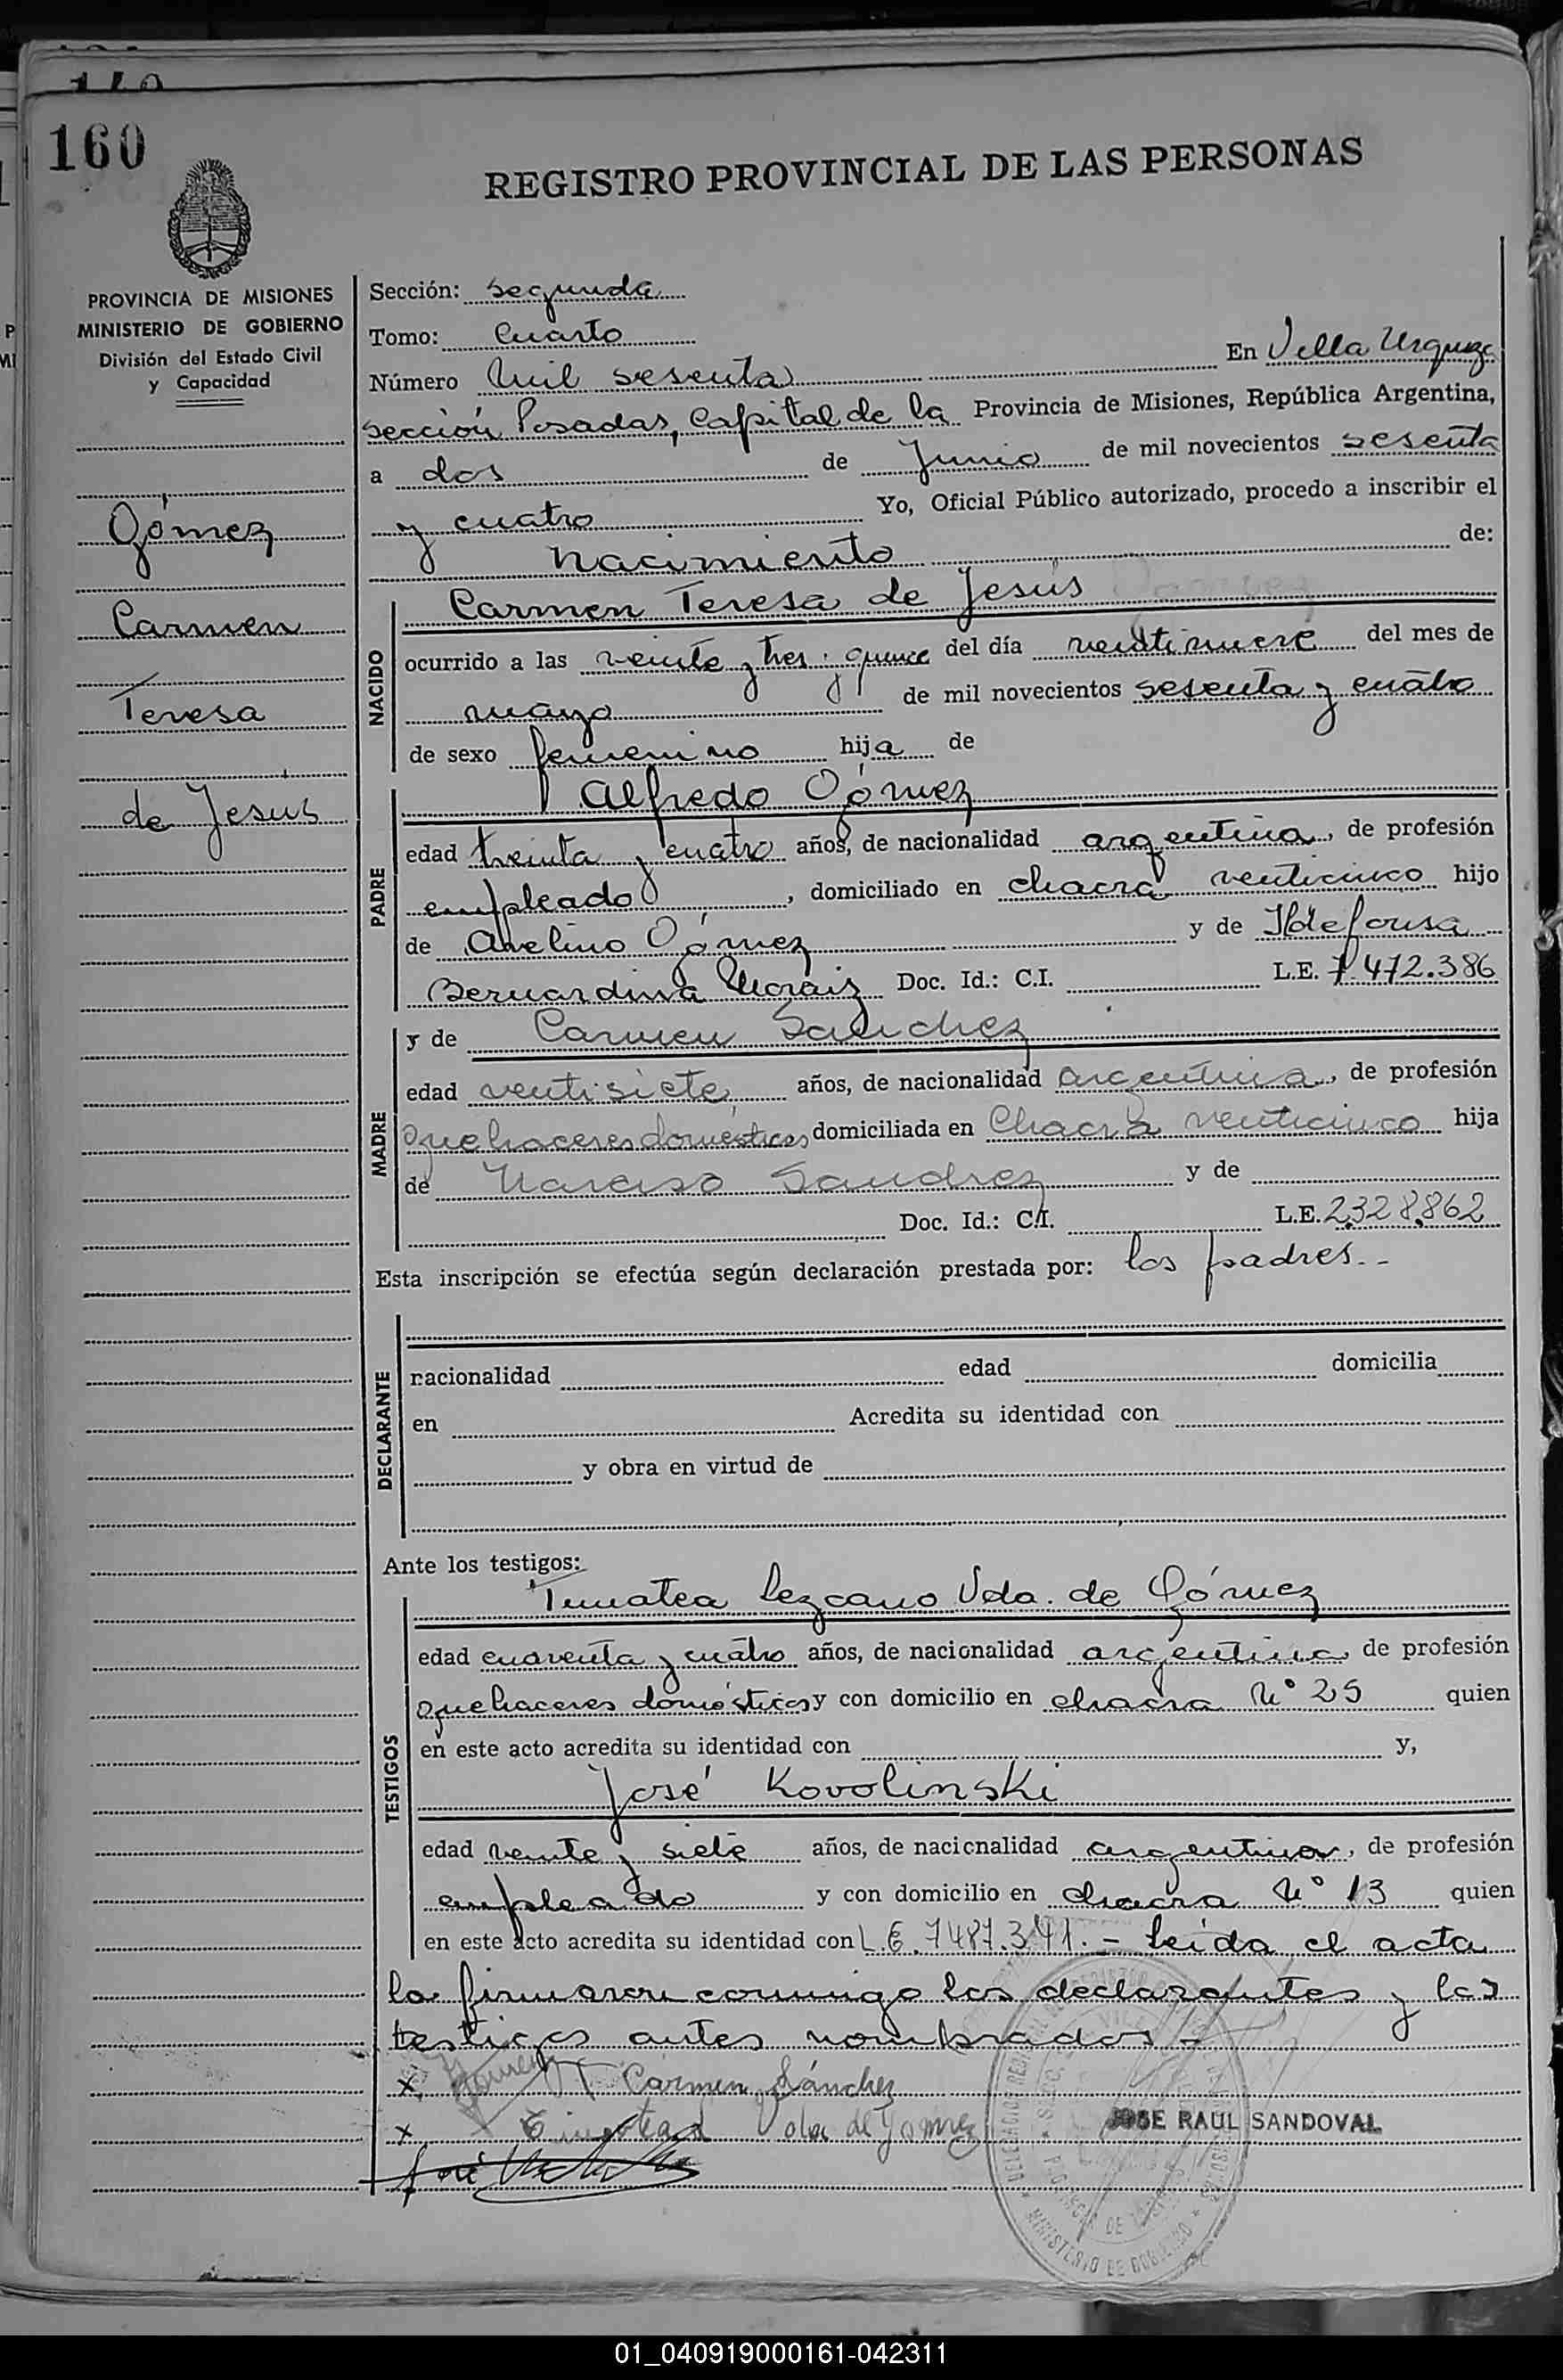 160
REGISTRO PROVINCIAL DE LAS PERSONAS
PROVINCIA DE MISIONES
MINISTERIO DE GOBIERNO
División del Estado Civil
y Capacidad
Gómez
Carmen
Teresa
de Jesus
Sección: segunda
Tomo: Cuarto
Número Mil sesenta En Villa Urquiza
sección Posadas, Capital de la Provincia de Misiones, República Argentina,
a dos de Junio de mil novecientos sesenta
y cuatro Yo, Oficial Público autorizado, procedo a inscribir el
nacimiento de:
NACIDO
Carmen Teresa de Jesús
ocurrido a las veinte y tres quince del día veintinueve del mes de
mayo de mil novecientos sesenta y cuatro
de sexo femenino hija de
PADRE
Alfredo Gómez
edad treinta y cuatro años, de nacionalidad argentina, de profesión
empleado, domiciliado en chacra venticinco hijo
de Avelino Gómez y de Ildefonsa
Bernardina Doc. Id.: C.I. L.E. 7.472.386
MADRE
y de Carmen Sanchez
edad ventisiete años, de nacionalidad argentina, de profesión
quehaceres domésticos domiciliada en Chacra venticinco hija
de Narciso Sanchez y de
Doc. Id.: C.I. L.E. 2.328.862
Esta inscripción se efectúa según declaración prestada por: los padres.--
DECLARANTE
racionalidad edad domicilia
en Acredita su identidad con
y obra en virtud de
Ante los testigos:
TESTIGOS
Lezcano Vda. de Gómez
edad cuarenta y cuatro años, de nacionalidad argentina de profesión
quehaceres domésticos y con domicilio en chacra Nº 25 quien
en este acto acredita su identidad con y,
José Kovolinski
edad veinte y siete años, de nacionalidad argentina, de profesión
empleado y con domicilio en chacra Nº 13 quien
en este acto acredita su identidad con L.E. 7487.341.- Leida el acta
la firmaron conmigo los declarantes y los
testigos antes nombrados.-
x Gomez Carmen Sánchez
x Vda de Gomez
JOSE RAUL SANDOVAL
MINISTERIO DE GOBIERNO
01_040919000161-042311